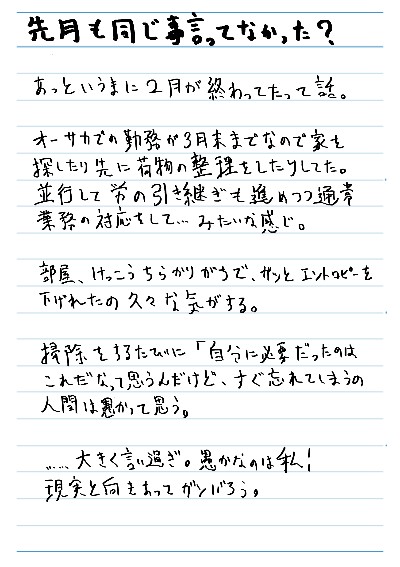 先月も同じ事言ってなかった?
あっというまに2月が終わってたって話。
オーサカでの勤務が3月末までなので家を
探したり先に荷物の整理をしたりしてた。
並行して労の引き継ぎも進めつつ通常
業務の対応をして… みたいな感じ。
部屋、けっこうちらかりがちで、ガッとエントロピーを
下げれたの久々な気がする。
掃除をするたびに「自分に必要だったのは
これだなって思うんだけど、すぐ忘れてしまうの
人間は愚かって思う。
……大きく言い過ぎ。愚かなのは私!
現実と向きあってガンバろう。